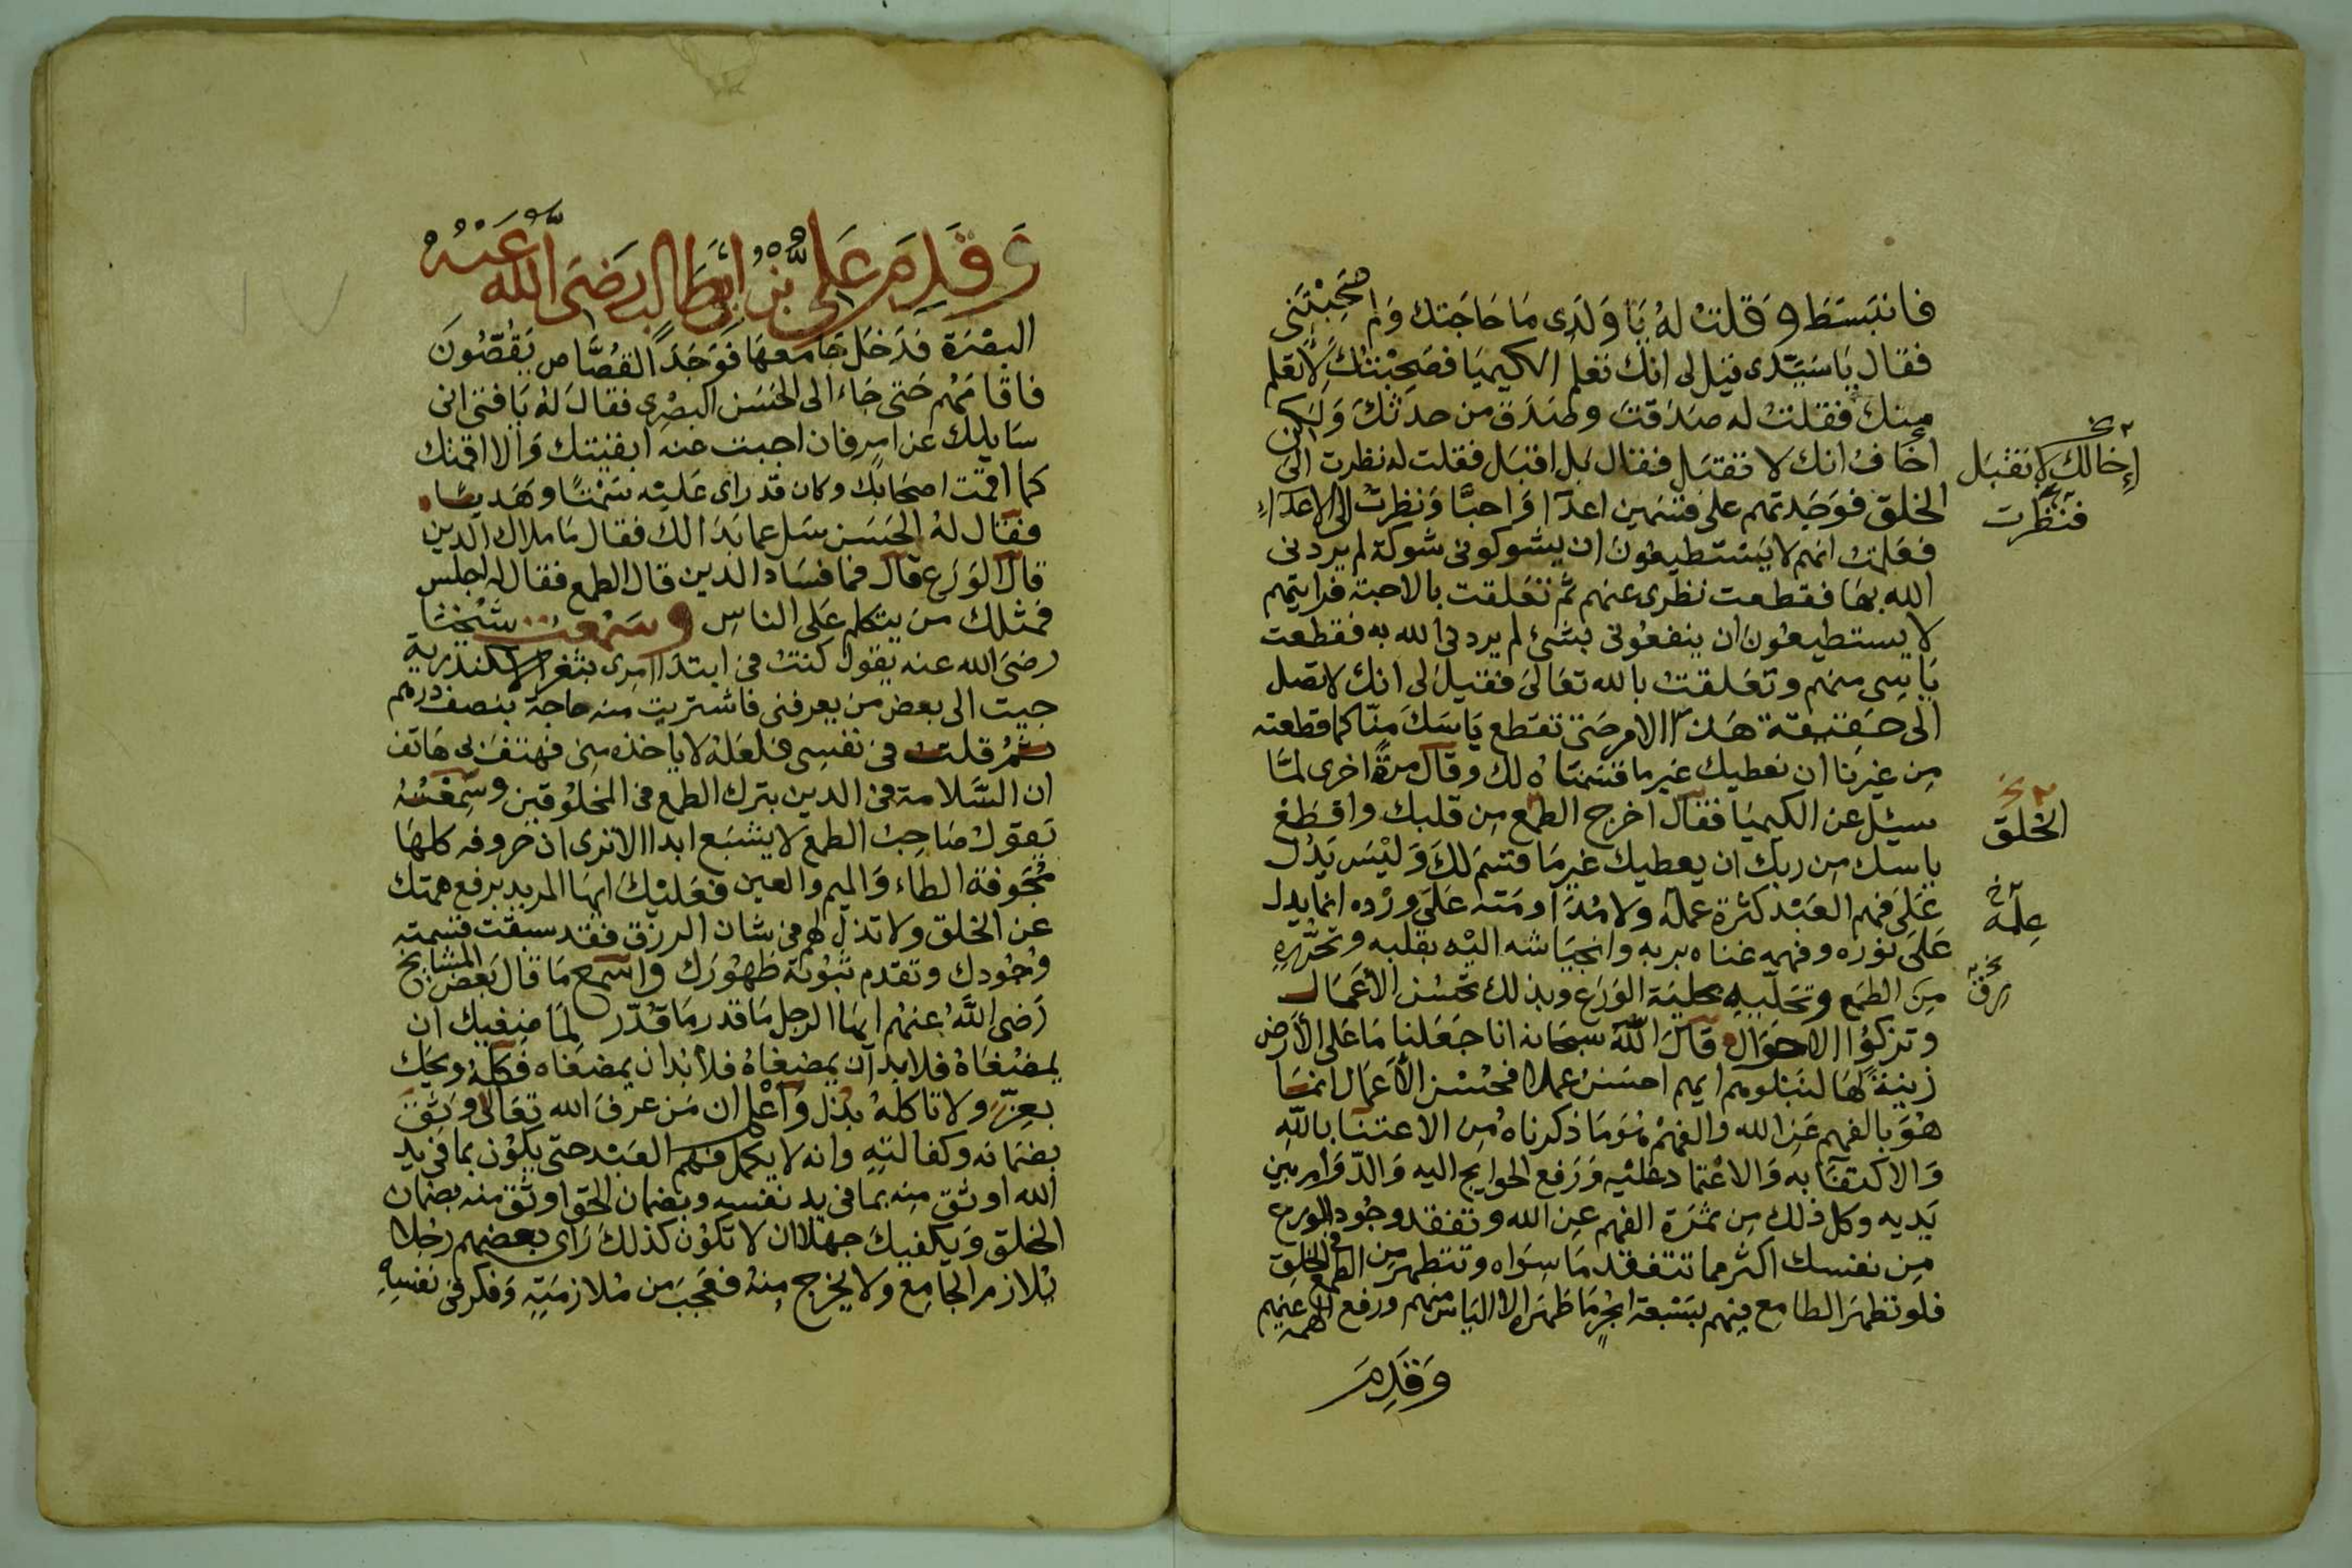 فانبَسَطَ وَقلتْ لهُ يَا وَلَدِى مَا حَاجَتك وَلم صَحِبْتَنى
فقال يَا سَيّدى قيل لى انك تعلم الكيميَا فصَحِبْتُكَ لأتعلم
مِنك فقلتْ له صَدَقتَ وصَدَق من حدثكَ وَلكِن
اخَافُ انك لا تقبَل فقال بَل اقبَل فقلت له نظرت الى
الخلق فوَجَدتهم على قسمين اعدآ وَاحبَّا وَنظرتُ الى الاعدآءِ
فعَلمتُ انهم لا يَسْتطيعُونَ ان يشوكونى شوكة لم يردنى
الله بهَا فقطعت نظرى عنهم ثم تعَلقت بالاحبة فرايتهم
لا يستطيعُون ان ينفعُونى بشئ لم يردنى الله به فقطعت
يَاسِى منهم وتعَلقتْ بالله تعَالىَ فقيلَ لى انكَ لا تصل
الى حَقيقة هَذا الامر حَتى تقطع يَاسَكَ منّا كما قطعته
مِن غيرنا ان نعطيك غير ما قسَمنَاه لك وقال مرةً اخرى لمَّا
سيئل عن الكيميَا فقال اخرج الطمع مِن قلبك واقطعْ
ياسك مِن ربك ان يعطيك غير مَا قسَم لكَ وَليْسَ يَدُل
عَلَى فهم العَبْد كثرة عمله ولا مُدَاومَته عَلى ورْده انما يدل
عَلى نوره وفهمه غناه بربه وانحيَاشه اليْه بقلبه وتحَرّره
مِنَ الطمَع وتحَلّيهِ بحليَة الوَرَع وبذلك تحسُن الأعمَال
وتزكُوا الاحوَال قالَ الله سبحَانه انا جَعَلنا مَا عَلى الأرض
زينةً لهَا لنَبْلوهم ايهم احسَنُ عملا فحُسْن الأعمَال انما
هُوَ بالفهم عَن الله والفهمُ هُوَ مَا ذكرناهُ مِن الاعتنا بالله
وَالاكتفَا بِهِ وَالاعْتماد عَليْه وَرَفع الحوايج اليه وَالدّوَامِ بين
يَديه وكل ذلك مِن ثمَرَة الفهم عن الله وتفقد وجُود الورع
مِن نفسك اكثر مما تتفقد مَا سِوَاه وتتطهر من الطمع فى الخلق
فلو تطهرَ الطامع فيهم بسَبْعة ابْحُرٍ مَا طهّرَه الا اليَاس منهم ورفع الهمة عنهم
وَقَدِمَ
إخالك لا تقبَل
فنظرت
الخلق
عِلمه
وَقَدِمَ عَلىُّ بْنُ ابى طَالبٍ رَضىَ اللهُ عَنْهُ
البَصْرَة فدَخَل جَامعهَا فوَجَدَ القُصَّاص يَقُصّونَ
فاقامَهُم حَتى جَاء الى الحَسَن البصْرى فقالَ لهُ يَا فتى انى
سَايلك عن امر فان اجبت عنه ابقيتك وَالا اقمتك
كما اقمت اصحَابك وكان قد راى عَليْه سَمْتًا وهَديًا
فقال لهُ الحَسَن سَل عما بَدَا لك فقال مَا ملاك الدين
قال الوَرَع قال فما فسَاد الدين قال الطمع فقال له اجلس
فمثلك مَن يتكلم عَلى الناسِ وسَمعتُ شَيْخنا
رضىَ الله عنه يقول كنتُ فى ابتدَا امرى بثغر الاسكندرية
جيت الى بعض من يعرفنى فاشتريت منه حاجة بنصف درهم
ثمُ قلت فى نفسِى فلعَلهُ لا ياخذه مِنى فهَتفَ بى هَاتف
ان السَّلامة فى الدين بترك الطمع فى المخلوقين وسَمِعْتهُ
يَقوُل صَاحِبُ الطمع لا يشبَع ابدا الا ترى ان حروفه كلهَا
مُجَوفة الطاء وَالميم والعين فعَليْكَ ايهَا المريد برفع همتك
عن الخلق ولا تذل لهم فى شان الرزق فقد سبقت قسمته
وُجُودك وتقدم ثبُوتهُ ظهُورَك واسْمع مَا قال بَعض المشايخ
رَضى اللهُ عنهُم ايها الرجل مَا قدر مَاضغيك ان
يمضغَاهُ فلا بد ان يمضغاهُ فكلهُ ويحَك
بعِزّ ولا تاكلهُ بذل وَاعْلم ان مَن عرفَ الله تعَالى وَثق
بضمَانه وكفالتِهِ وانه لا يكمل فهم العَبْد حتى يكون بما فى يد
الله اوثق منه بما فى يد نفسه وبضمان الحق اوثق منه بضمان
الخلق وَيكفيكَ جهْلا ان لا تكوُن كذلكَ رَاى بعضهم رَجُلا
يُلازم الجَامِع ولا يخرج مِنهُ فعَجبَ من مُلازمَتِهِ وَفكر فى نفسِهِ